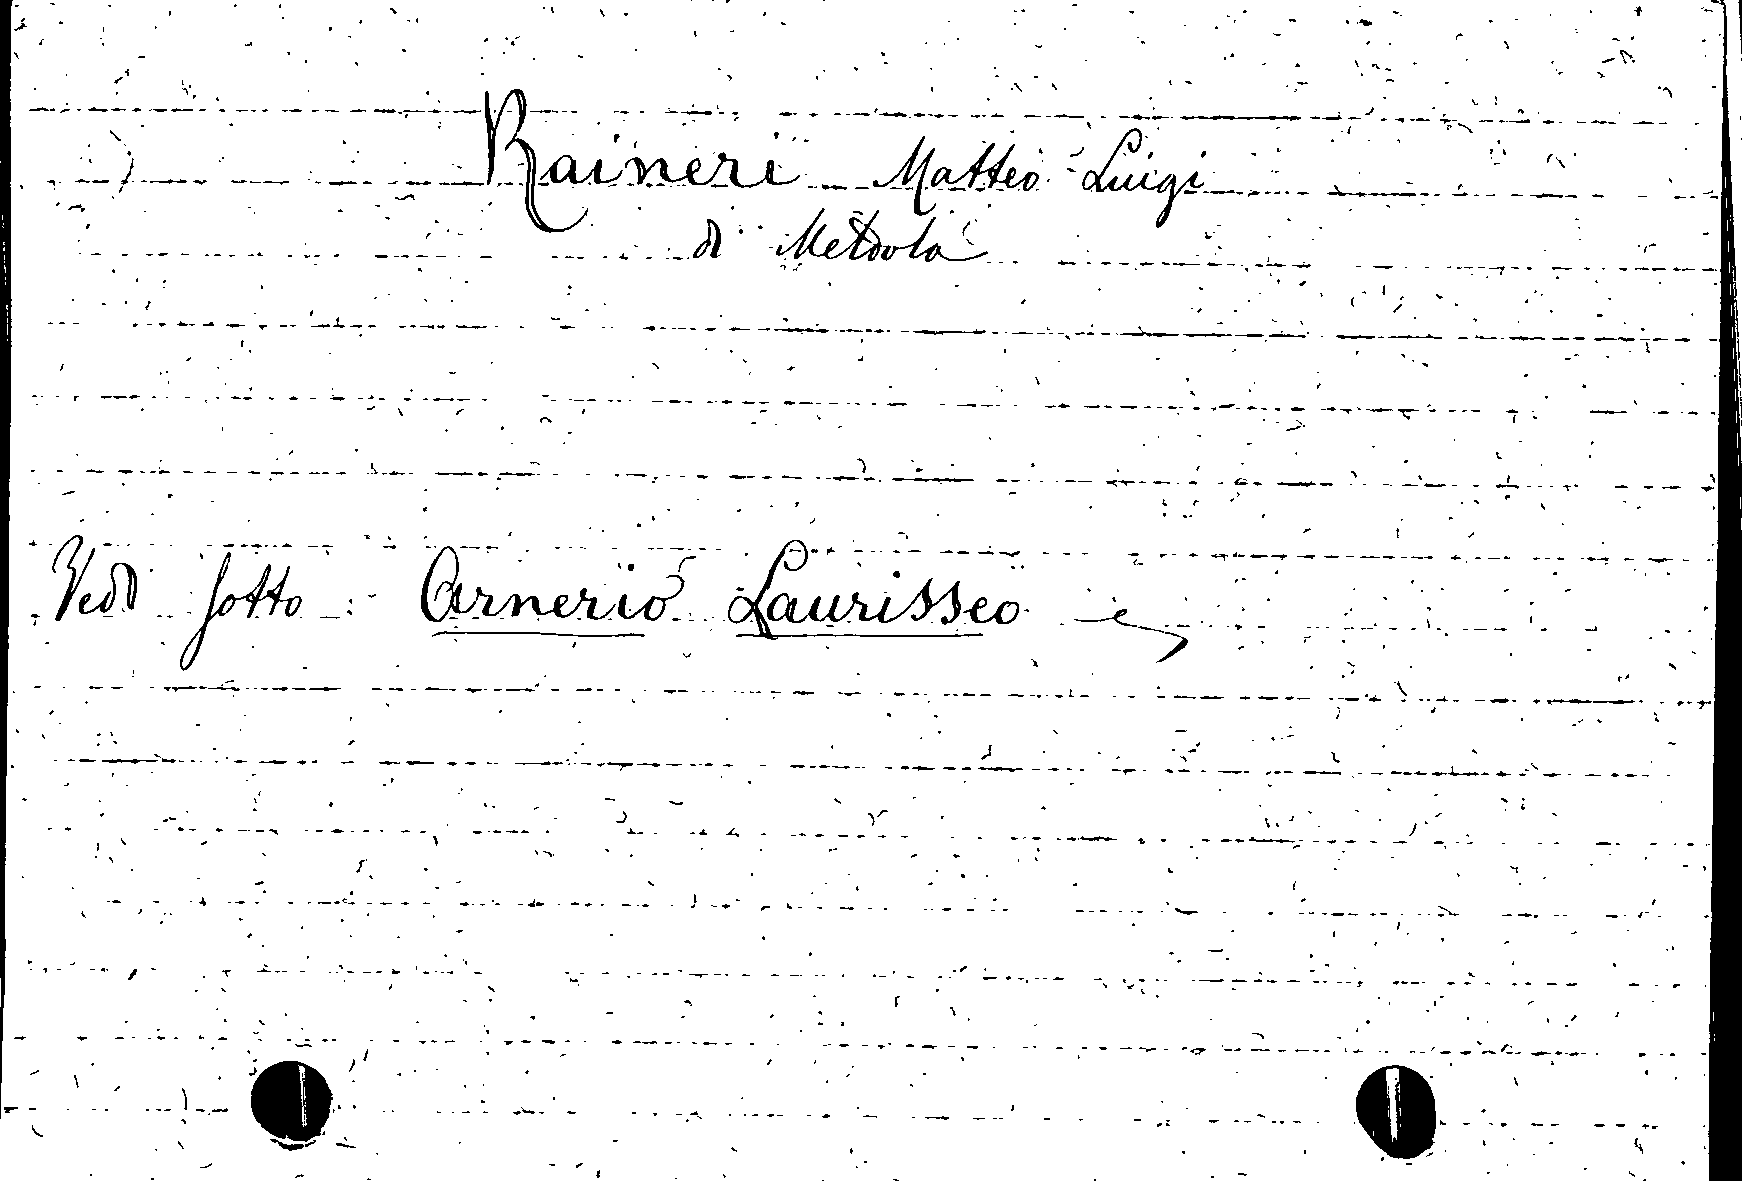 Raineri Matteo Luigi
di Meldola
Vedi sotto: Arnerio Laurisseo